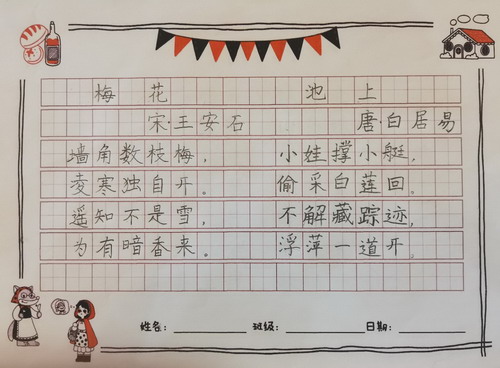 梅花
宋·王安石
墙角数枝梅，
凌寒独自开。
遥知不是雪，
为有暗香来。
池上
唐·白居易
小娃撑小艇，
偷采白莲回。
不解藏踪迹，
浮萍一道开。
姓名： 班级： 日期：